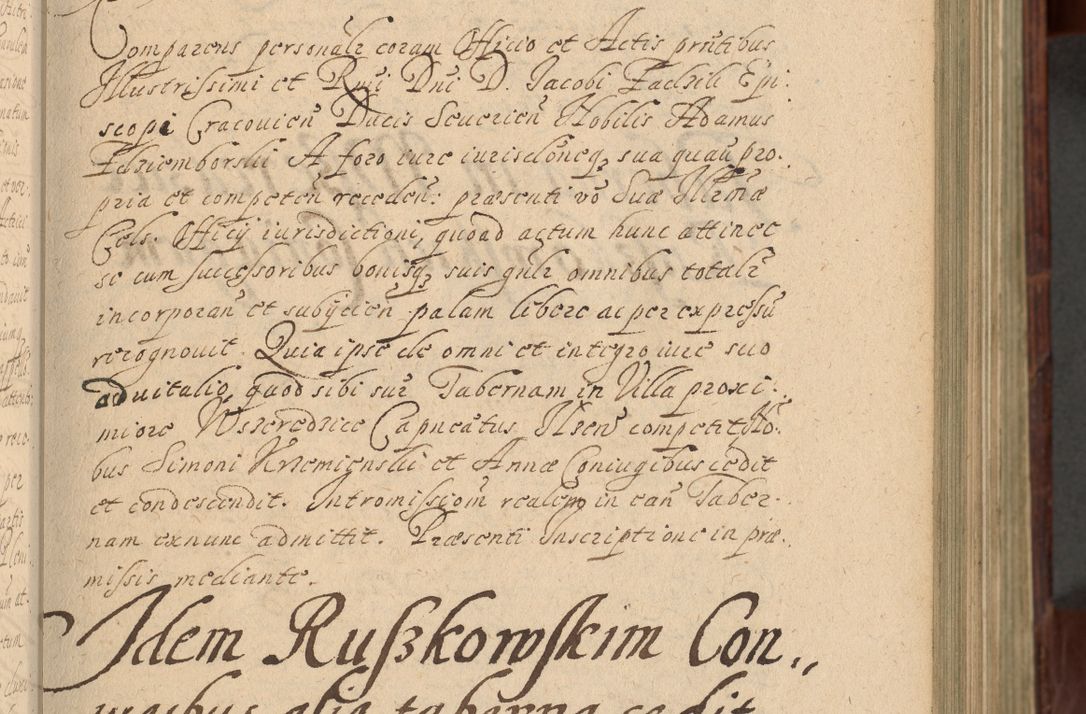 Comparens personalr coram Officio et Actis prntibus
Illustrissimi et Rndi Dni D. Jacobi Zadzik Epi:
scopi Cracovien Ducis Severien Nobilis Adamus
A foro iure iurisdonēq, sua quavis pro.
pria et competen receden: præsenti vō Suæ Illrmæ
Cels. Officij iurisdictioni, quoad actum hunc attinet
se cum successoribus bonisq, suis gnlr omnibus totalr
incorporan et subijcien palam libere ac per expressū
recognovit. Quia ipse de omni et integro iure suo
advitalio, quod sibi sur Tabernam in Villa proxi:
miore Capneatus Ilsen competit No:
bus Simoni et Annæ Coniugibus cedit
et condescendit. Intromissiom realem in ean Taber.
nam exnunc admittit. Præsenti Inscriptione in præ.
missis mediante.
Idem Ruszkowskim Con,,
iugibus alia taberna cedit